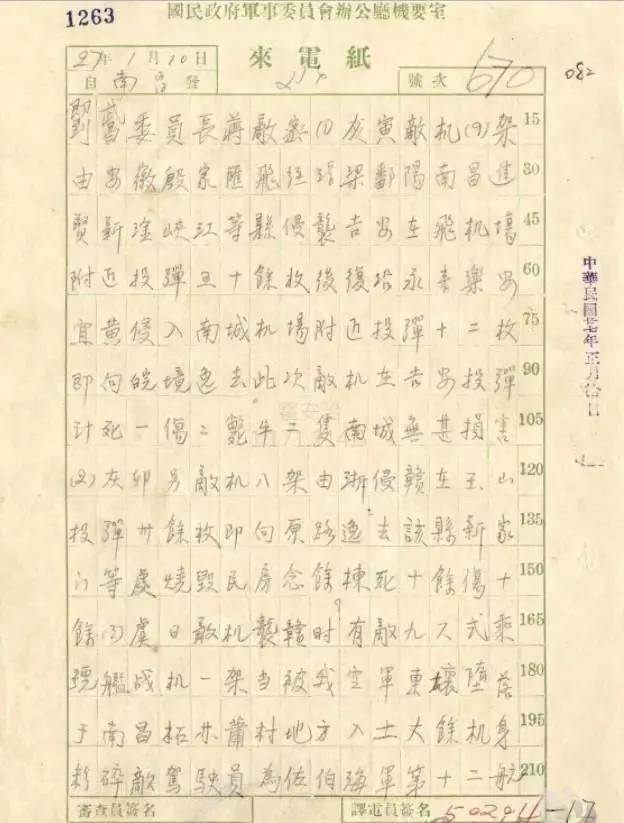 國民政府軍事委員會辦公廳機要室
1263
27年1月10日
來電紙
自南昌發
號次 670
082
委員長蔣敵密(1)灰寅敵机(9)架 15
由安徽殷家匯飛經 梁鄱陽南昌進 30
賢新淦峽江等縣侵襲吉安在飛机場 45
附近投彈五十餘枚後復沿永豐樂安 60
宜黃侵入南城机場附近投彈十二枚 75
即向皖境逸去此次敵机在吉安投彈 90
計死一傷二斃牛二隻南城無甚損害 105
(2)灰卯另敵机八架由浙侵贛在玉山 120
投彈卅餘枚即向原路逸去該縣新家 135
等處燒毀民房念餘棟死十餘傷十 150
餘(3)虞日敵机襲贛时有敵九 式 165
號艦战机一架当被我空軍 壞墮落 180
于南昌 蕭村地方入土大餘机身 195
粉碎敵駕駛員為佐伯海軍第十二航 210
審查員簽名
譯電員簽名
中華民國廿七年正月拾日